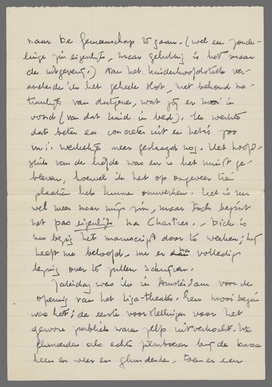 naar De Gemeenschap te gaan. (wel een zonder-
linge zin eigenlijk, maar gelukkig is het maar
de uitgeverij.) Aan het kinderhoofdstuk ver-
anderde ik het geheele slot, het behoud na-
tuurlijk van datgene, wat jij er mooi in
vond (van dat kind in bed). Ik werkte
dat beter en concreter uit en het is zoo
m.i. werkelijk meer geslaagd nog. Het hoofd-
stuk van de liefde was en is het minst ge-
bleven, hoewel ik het op ongeveer tien
plaatsen heb kunnen omwerken. Het is nu
wel meer naar mijn zin, maar toch begint
het pas eigenlijk na Chartres. Dick is
nu bezig het manuscript door te werken; hij
heeft me beloofd, me er een volledig
lezing over te zullen schrijven.
Zaterdag was ik in Amsterdam voor de
opening van het Liga-theater. Een mooi begin
was het; de eerste voorstellingen voor het
gewone publiek waren zelfs uitverkocht. We
als echte bij de kassa
heen en weer en glunderden. Toen er een